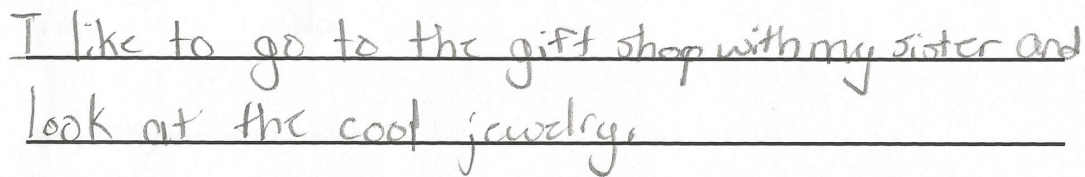 I like to go to the gift shop with my sister and
look at the cool jewelry.